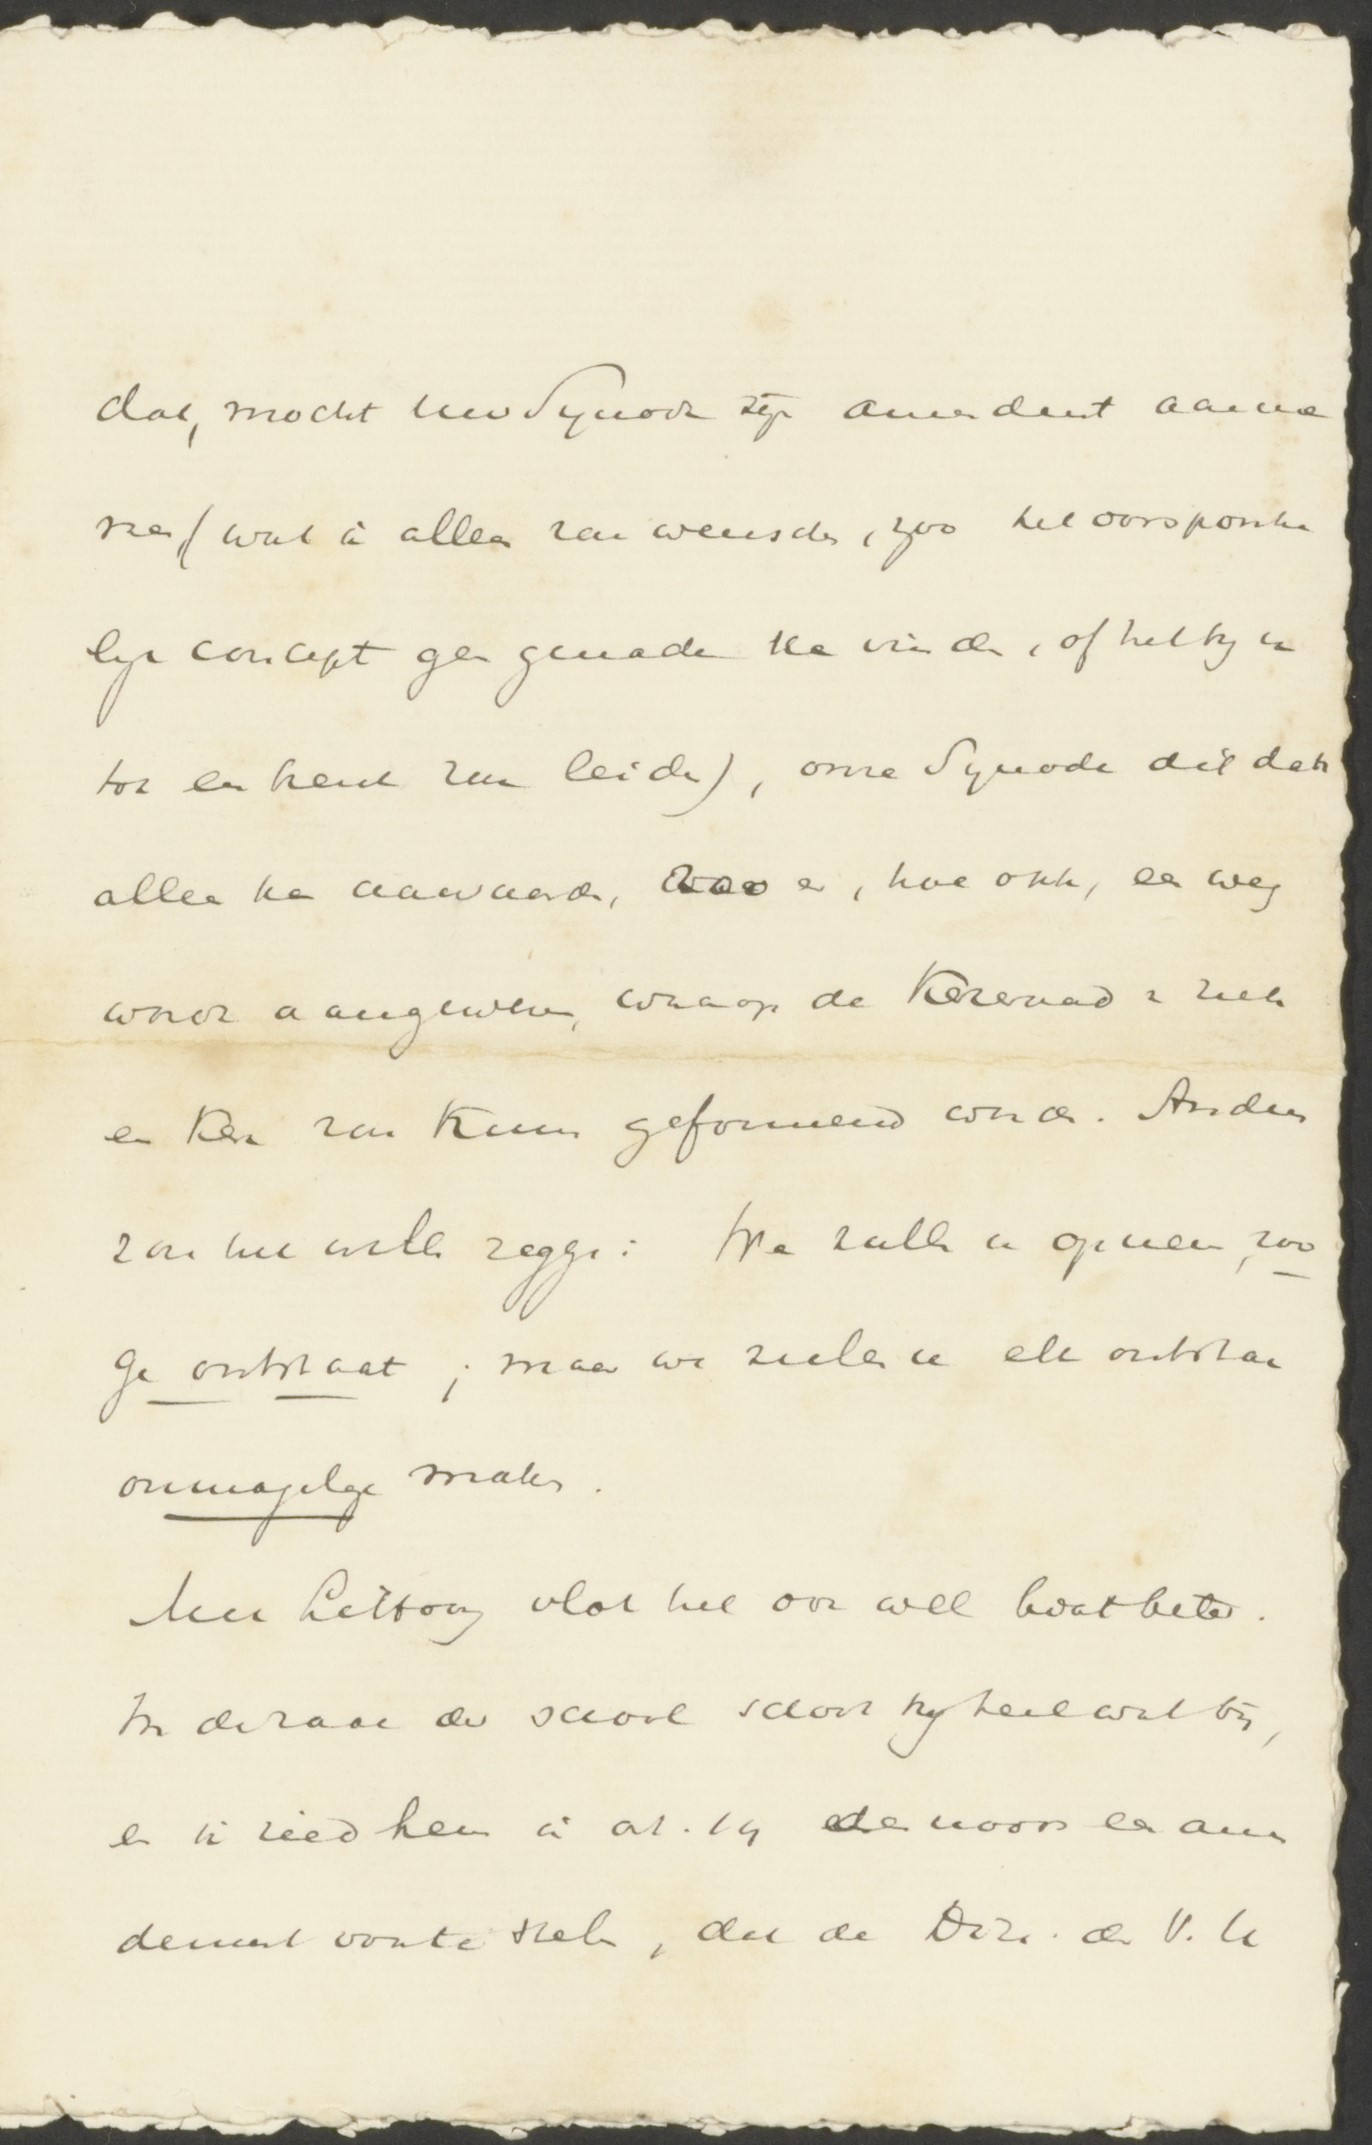 dat, mocht Uw Synode zijn amendment aanne
men (wat ik alleen zou wenschen, zoo het oorspronke
lijk concept geen genade kan vinden, of het bij u
tot een breuk zou leiden), onze Synode dit dan
alleen kan aanvaarden, zoo er, hoe ook, een weg
wordt aangewezen, waarop de Kerkeraad zich
en Kerk zou kunnen geformeerd worden. Anders
zou het willen zeggen: We zullen u opnemen, zoo
ge ontstaat; maar we zullen u elk ontstaan
onmogelijk maken.
Met vlot het ook wel wat beter.
In de zaak der school schoot hij heel wat bij,
en ik ried hem in art. 14 een amen
dement voor te stellen, dat de der V. U